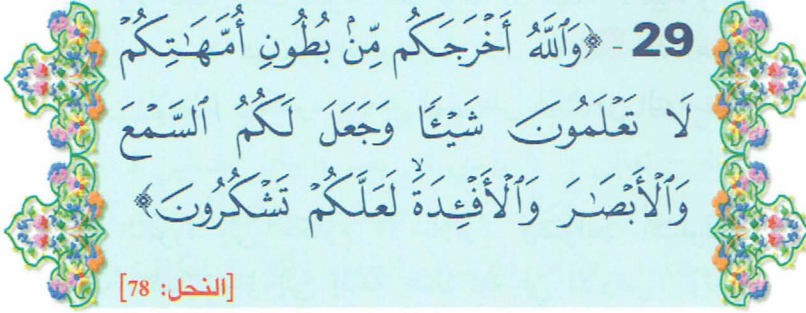 29 - ﴿وَٱللَّهُ أَخْرَجَكُم مِّنۢ بُطُونِ أُمَّهَٰتِكُمْ
لَا تَعْلَمُونَ شَيْـًٔا وَجَعَلَ لَكُمُ ٱلسَّمْعَ
وَٱلْأَبْصَٰرَ وَٱلْأَفْـِٔدَةَ ۙ لَعَلَّكُمْ تَشْكُرُونَ﴾
[النحل: 78]